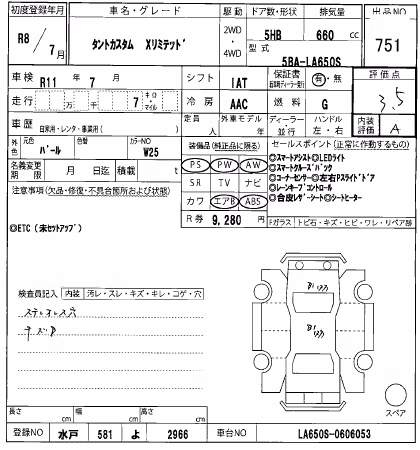 初度登録年月 車名・グレード 駆動 ドア数・形状 排気量 出品NO
R8/7月 タントカスタム Xリミテッド 2WD・4WD 5HB 660 cc 751
型式 5BA-LA650S
車検 R11年7月 シフト IAT 保証書 有・無 評価点 3.5
走行 万 千 7 キロ・マイル 冷房 AAC 燃料 G
車歴 自家用・レンタ・事業用( ) 定員 人 外車モデル 年 ディーラー・並行 ハンドル 左・右 内装評価 A
外色 元色 パール 色替 カラーNO W25 装備品(純正品に限る) セールスポイント(正常に作動するもの)
名義変更期限 月 日迄 積載 t PS PW AW
注意事項(欠品・修復・不具合箇所および状態) SR TV ナビ
◎ETC(未セットアップ) カワ エアB ABS
R券 9,280 円
◎スマートアシスト◎LEDライト
◎スマートクルーズパック
◎コーナーセンサー◎左右Pスライドドア
◎レーンキープコントロール
◎合皮レザーシート◎シートヒーター
Fガラス トビ石・キズ・ヒビ・ワレ・リペア跡
検査員記入 内装 汚レ・スレ・キズ・キレ・コゲ・穴
スペア
長さ cm 幅 cm 高さ cm
登録NO 水戸 581 よ 2966 車台NO LA650S-0606053